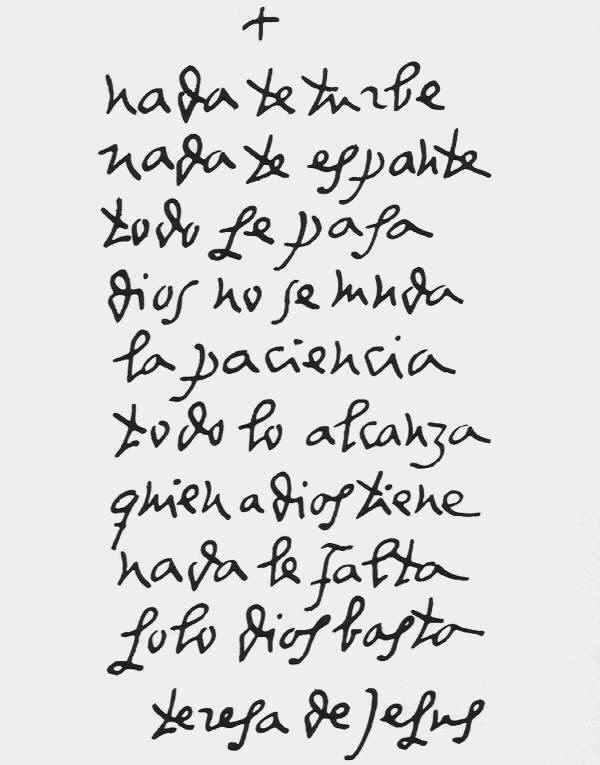 +
nada te turbe
nada te espante
todo se pasa
dios no se muda
la paciencia
todo lo alcanza
quien a dios tiene
nada le falta
solo dios basta
teresa de Jesus